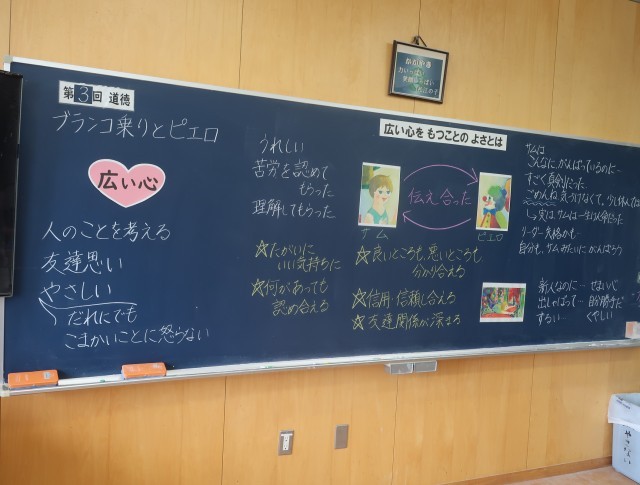 第3回 道徳
ブランコ乗りとピエロ
広い心
人のことを考える
友達思い
やさしい
だれにでも
こまかいことに怒らない
うれしい
苦労を認めて
もらった
理解してもらった
☆たがいに
いい気持ちに
☆何があっても
認め合える
広い心を もつことの よさとは
伝え合った
サム
ピエロ
☆良いところも、悪いところも
分かり合える
☆信用・信頼し合える
☆友達関係が深まる
サムは
こんなに、がんばっているのに…
すごく真剣だった
ごめんね
実はサムは一生けん命だった
リーダー失格かも…
自分も、サムみたいにがんばろう
新人なのに…
出しゃばって…自分勝手だ
ずるい…
くやしい
力いっぱい